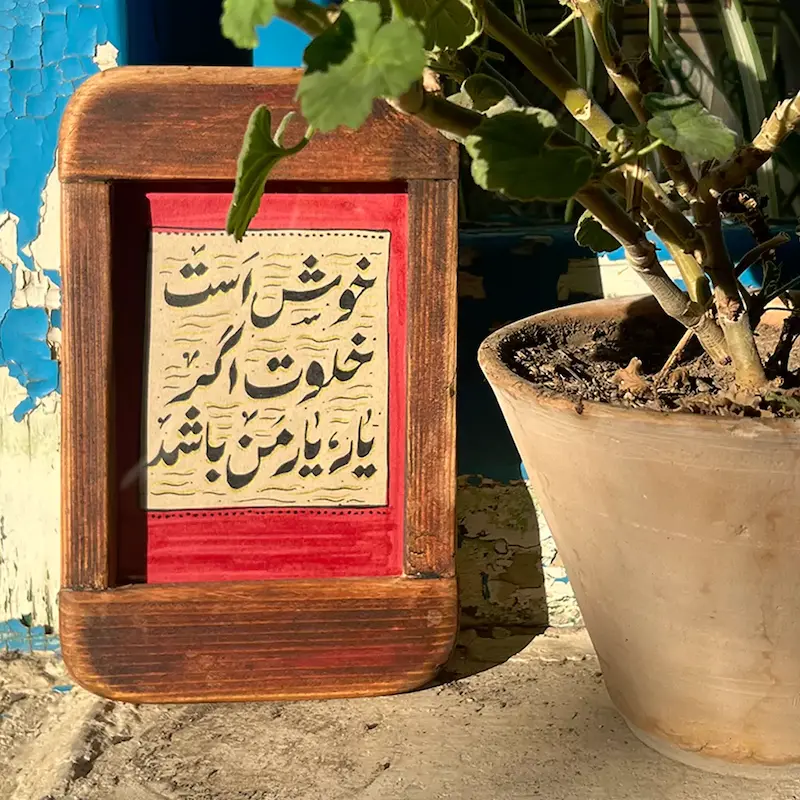 خوش است
خلوت اگر
یار، یار من باشد